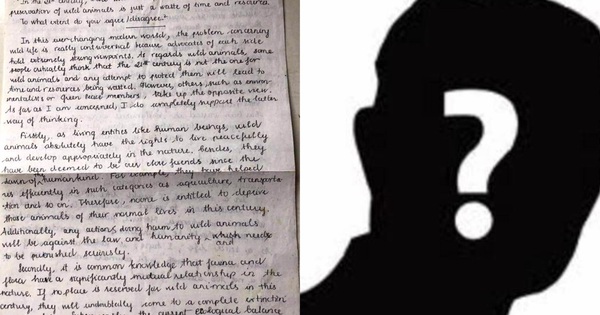 "In the 21st century,
preservation of wild animals is just a waste of time and resources.
To what extent do you agree/disagree."
In this ever-changing modern world, the problem concerning
wild life is really controversial because advocates of each side
hold extremely strong viewpoints. As regards wild animals, some
people actually think that the 21st century is not the one for
wild animals and any attempt to protect them will lead to
time and resources being wasted. However, others, such as environ-
mentalists or Green Peace members, take up the opposite view.
As far as I am concerned, I do completely support the latter
way of thinking.
Firstly, as living entities like human beings, wild
animals absolutely have the rights to live peacefully
and develop appropriately in the nature. Besides, they
have been deemed to be our close friends since the
dawn of humankind. For example, they have helped
us efficiently in such categories as agriculture, transporta-
tion and so on. Therefore, noone is entitled to deprive
those animals of their normal lives in this century.
Additionally, any actions doing harm to wild animals
will be against the law and humanity, which needs
and
to be punished seriously.
Secondly, it is common knowledge that fauna and
flora have a significantly mutual relationship in the
nature. If no place is reserved for wild animals in this
century, they will undoubtedly come to a complete extinction
the current ecological balance
?